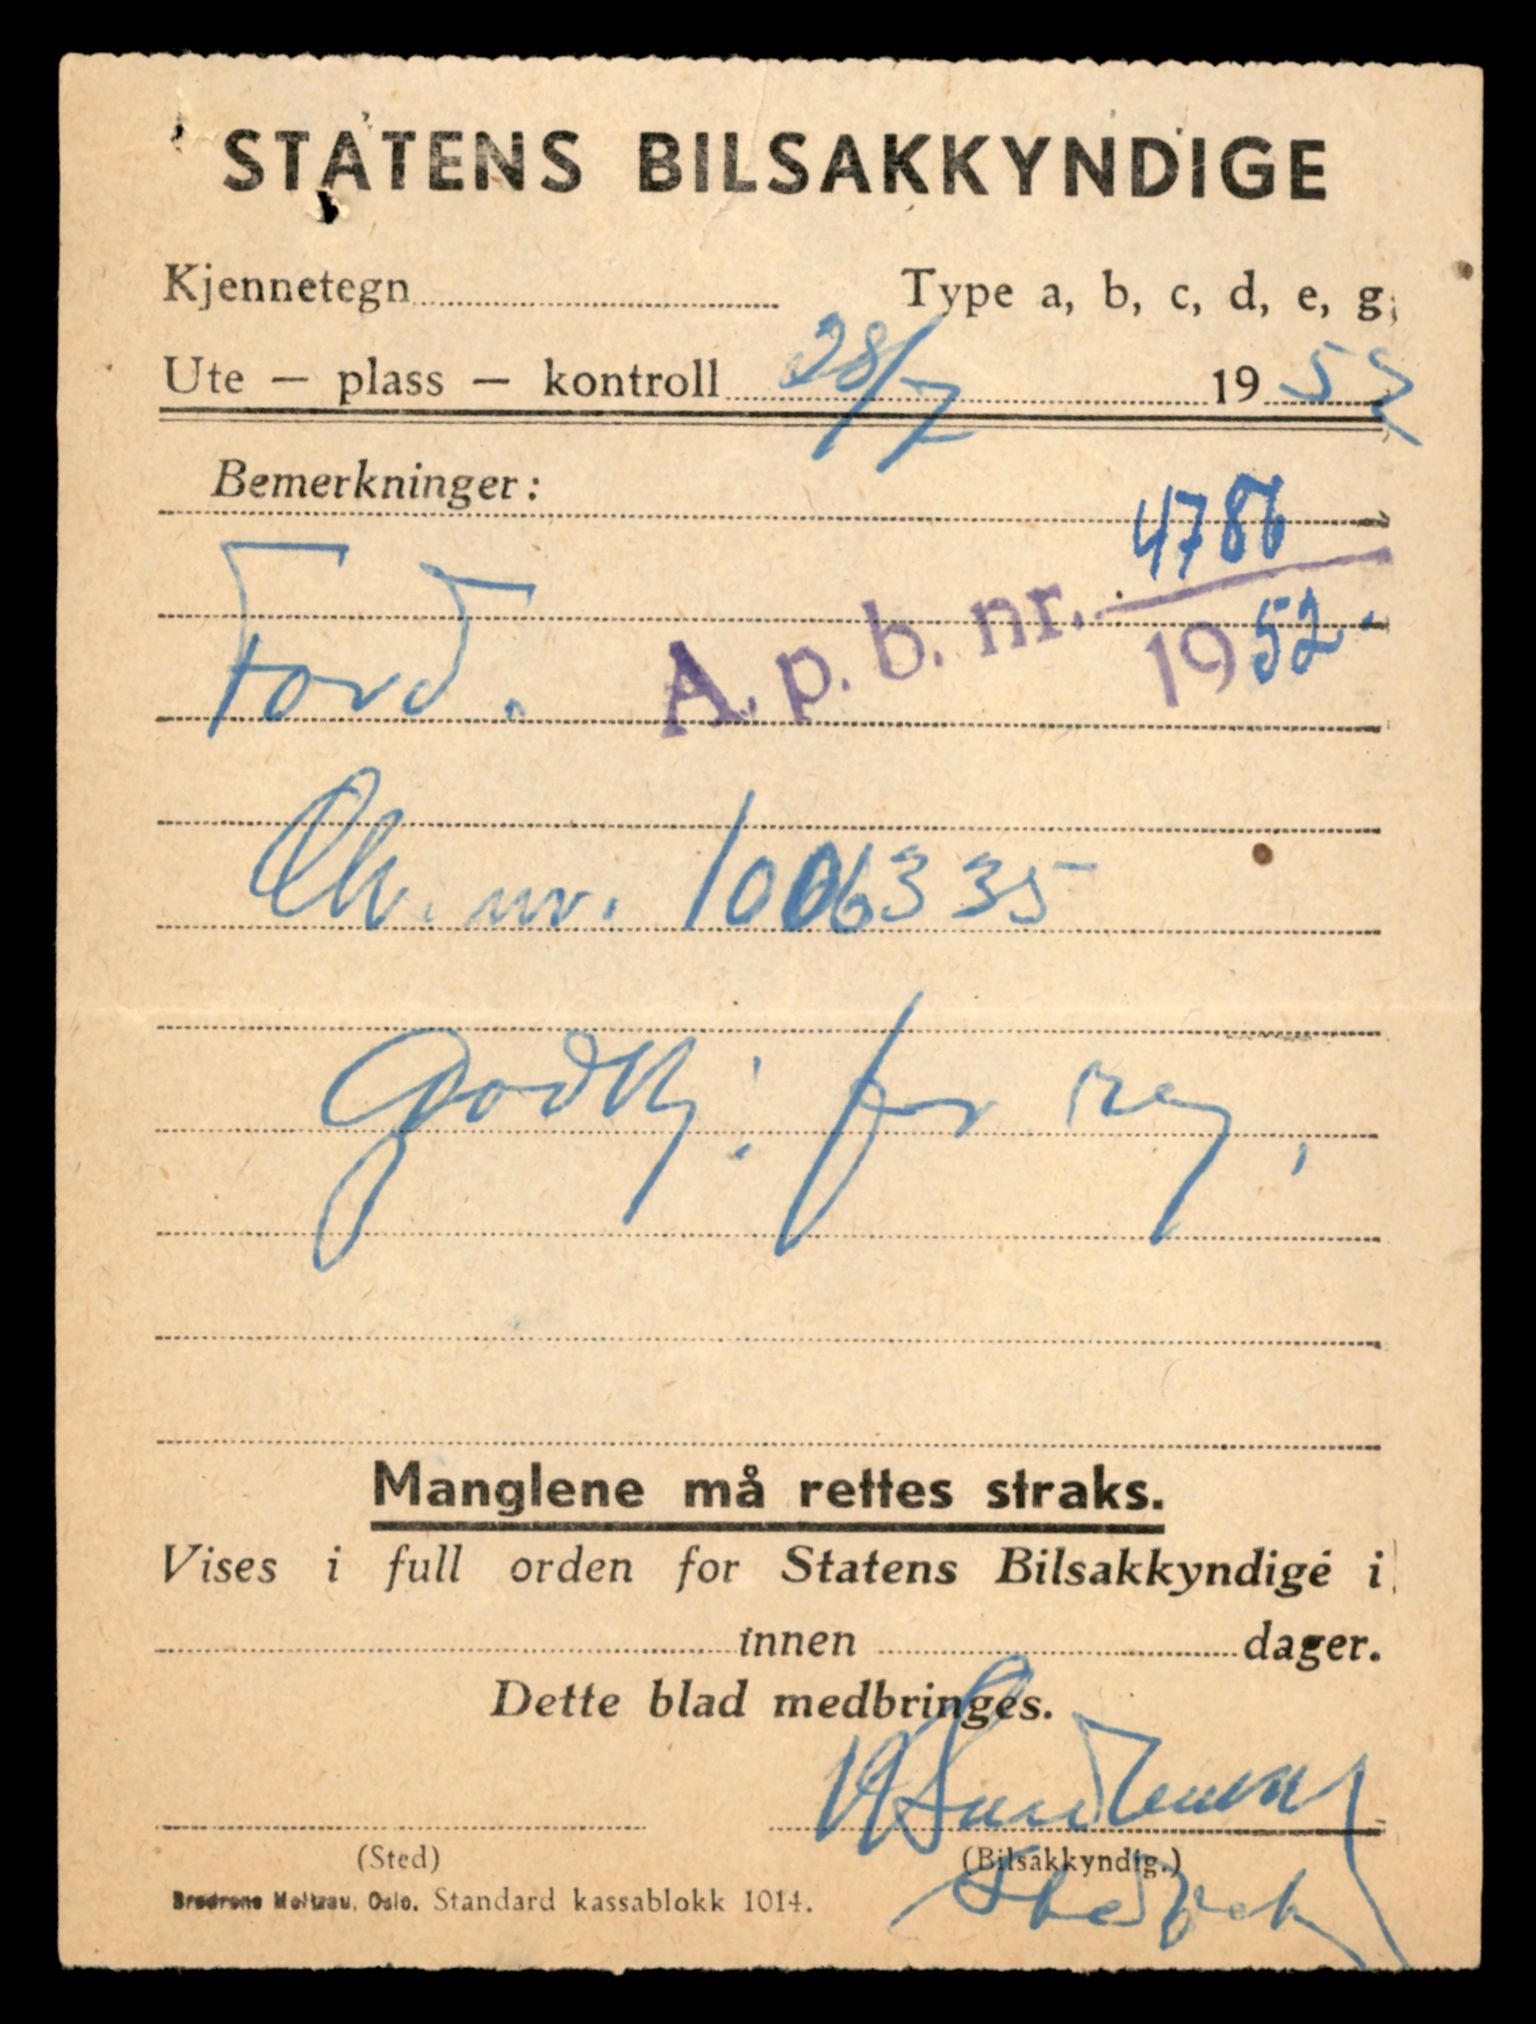 STATENS BILSAKKYNDIGE
Kjennetegn Type a, b, c, d, e, g,
Ute — plass — kontroll 28/7 1952
Bemerkninger:
4786
Ford. A. p. b. nr. 1952.
Ch. nr. 1006335
godkj: for reg.
Manglene må rettes straks.
Vises i full orden for Statens Bilsakkyndige i
innen dager.
Dette blad medbringes.
(Sted) (Bilsakkyndig.)
Brødrene Moltzau, Oslo. Standard kassablokk 1014.